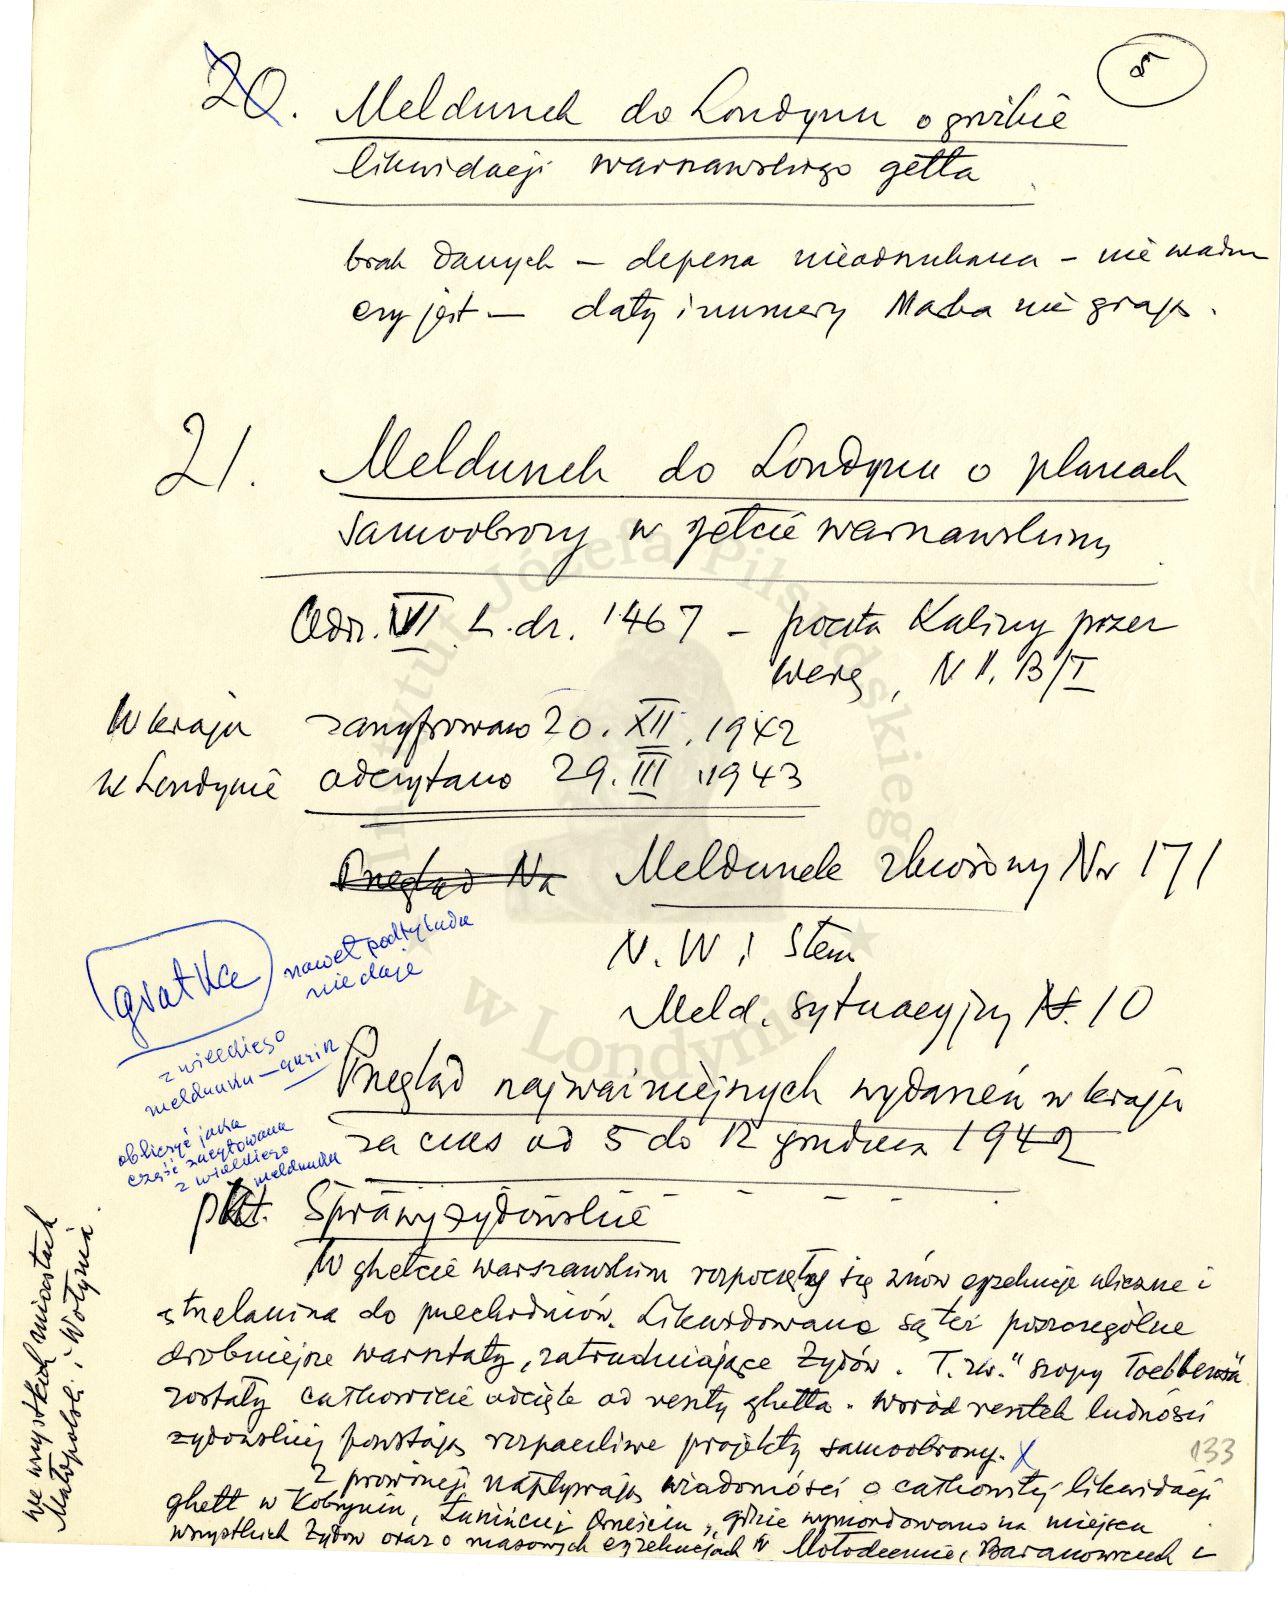 5
20. Meldunek do Londynu o groźbie
likwidacji warszawskiego getta
brak danych – depesza nieodszukana – nie wiadom
czy jest – daty i numery Marka nie grają.
21. Meldunek do Londynu o planach
samoobrony w getcie warszawskim
Odz. VI L.dz. 1467 – poczta Kaliny przez
Werę, N II. B/I
W kraju zaszyfrowano 20. XII. 1942
w Londynie odczytano 29. III. 1943
Przegląd Na Meldunek zbiorowy Nr 171
N. W i Stem
Meld. sytuacyjny N. 10
gratkę nawet podtytułu
nie daje
z wielkiego
meldunku –
obliczyć jaka
część zacytowana
z wielkiego
meldunku
Przegląd najważniejszych wydarzeń w kraju
za czas od 5 do 12 grudnia 1942
pkt. Sprawy żydowskie
W ghetcie warszawskim rozpoczęły się znów egzekucje uliczne i
strzelanina do przechodniów. Likwidowane są też poszczególne
drobniejsze warsztaty, zatrudniające Żydów. T.zw. "szopy Toebbensa
zostały całkowicie odcięte od reszty ghetta. Wśród resztek ludności
żydowskiej powstają rozpaczliwe projekty samoobrony. x
133
Z prowincji napływają wiadomości o całkowitej likwidacji
ghett w Kobryniu, Łunińcu, Brześciu, gdzie wymordowano na miejscu
wszystkich Żydów oraz o masowych egzekucjach w Mołodecznie, Baranowiczach i
we wszystkich miastach
Małopolski i Wołynia.
Instytut Józefa Piłsudskiego
w Londynie